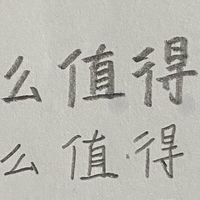 么值得
么值得